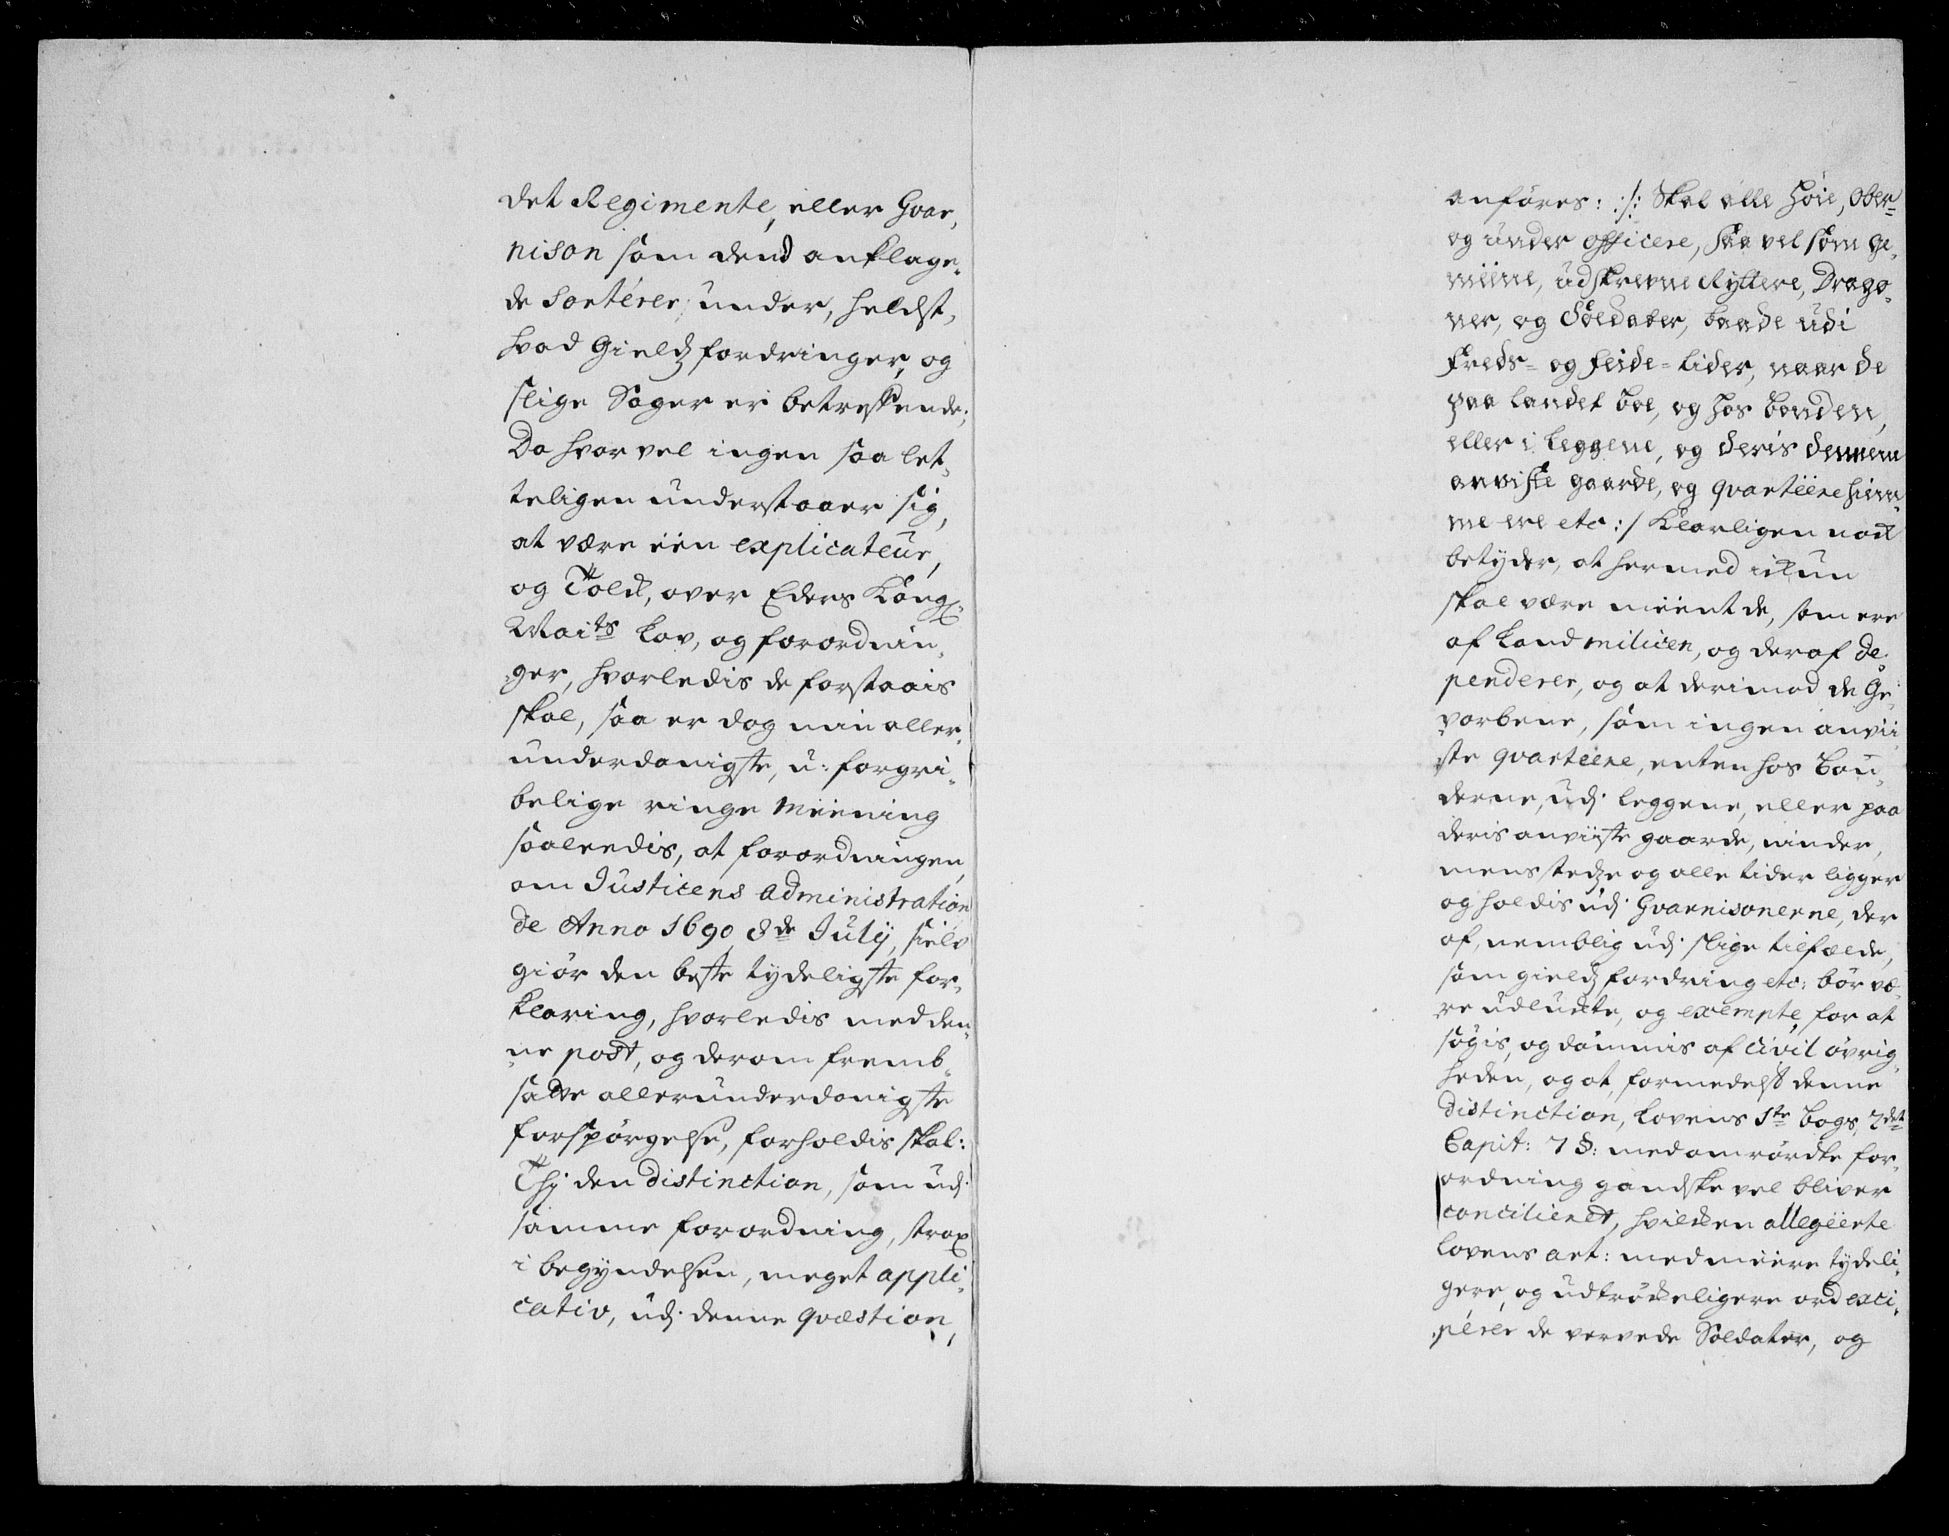 det Regimente, eller Gvar,
nison som dend anklage,
de Sortérer, under, heldst,
hvad Gields fordringer, og
slige Sager er betreffende;
Da hvor vel ingen saa let,
teligen understaaer sig,
at være een explicateur,
og Tolck, over Eders Kongl:
Maits Lov, og forordnin,
ger, hvorledis de forstaais
skal, saa er dog min aller,
underdanigste, u-forgri,
belige ringe Meening
saaleedis, at forordningen,
om Justicens Administration
de Anno 1690, 8de Julij, sielv
giør den beste tydeligste for,
klaring, hvorledis med den,
ne post, og derom fremb,
satte allerunderdanigste
forspørgelse, forholdis skal:
Thj den distinction, som udj
samme forordning, strax
i begyndelsen, meget appli,
cativ, udj denne qvæstion,
anføres: :/: Skal alle høie, Ober=
og under officere, saa vel som ge,
meene, udskrevne Ryttere, Drago,
ner, og Soldater, baade udi
freds= og feide=tider, naar de
paa landet boe, og hos bonden,
eller i leggene, og deris dennem
anviste gaarde, og qvarteere hiem,
me ere etc:/ Klarligen nock
betyder, at hermed ickun
skal være meent de, som ere
af Land milicen, og deraf de,
penderer, og at derimod de Ge,
vorbene, som ingen anvii,
ste qvarteere, enten hos Bøn,
derne, udj leggene, eller paa
deris anviiste gaarde, ninder,
mens stedse og alle tider ligger
og holdis udj Gvarnisonerne, der
af, nemblig udj slige tilfælde,
som gields fordring etc: bør væ,
re udluckte, og exempte, for at
søgis, og dømmis af Civil øvrig,
heden, og at, formedelst denne
distinction, Lovens 1te Bogs, 2det
Capit: 7 §: med omrørdte for,
ordning gandske vel bliver
concilieret, hvilcken allegeerte
Lovens art: med meere tydeli,
gere, og udtrøckeligere ord exci,
pérer de vervede Soldater, og